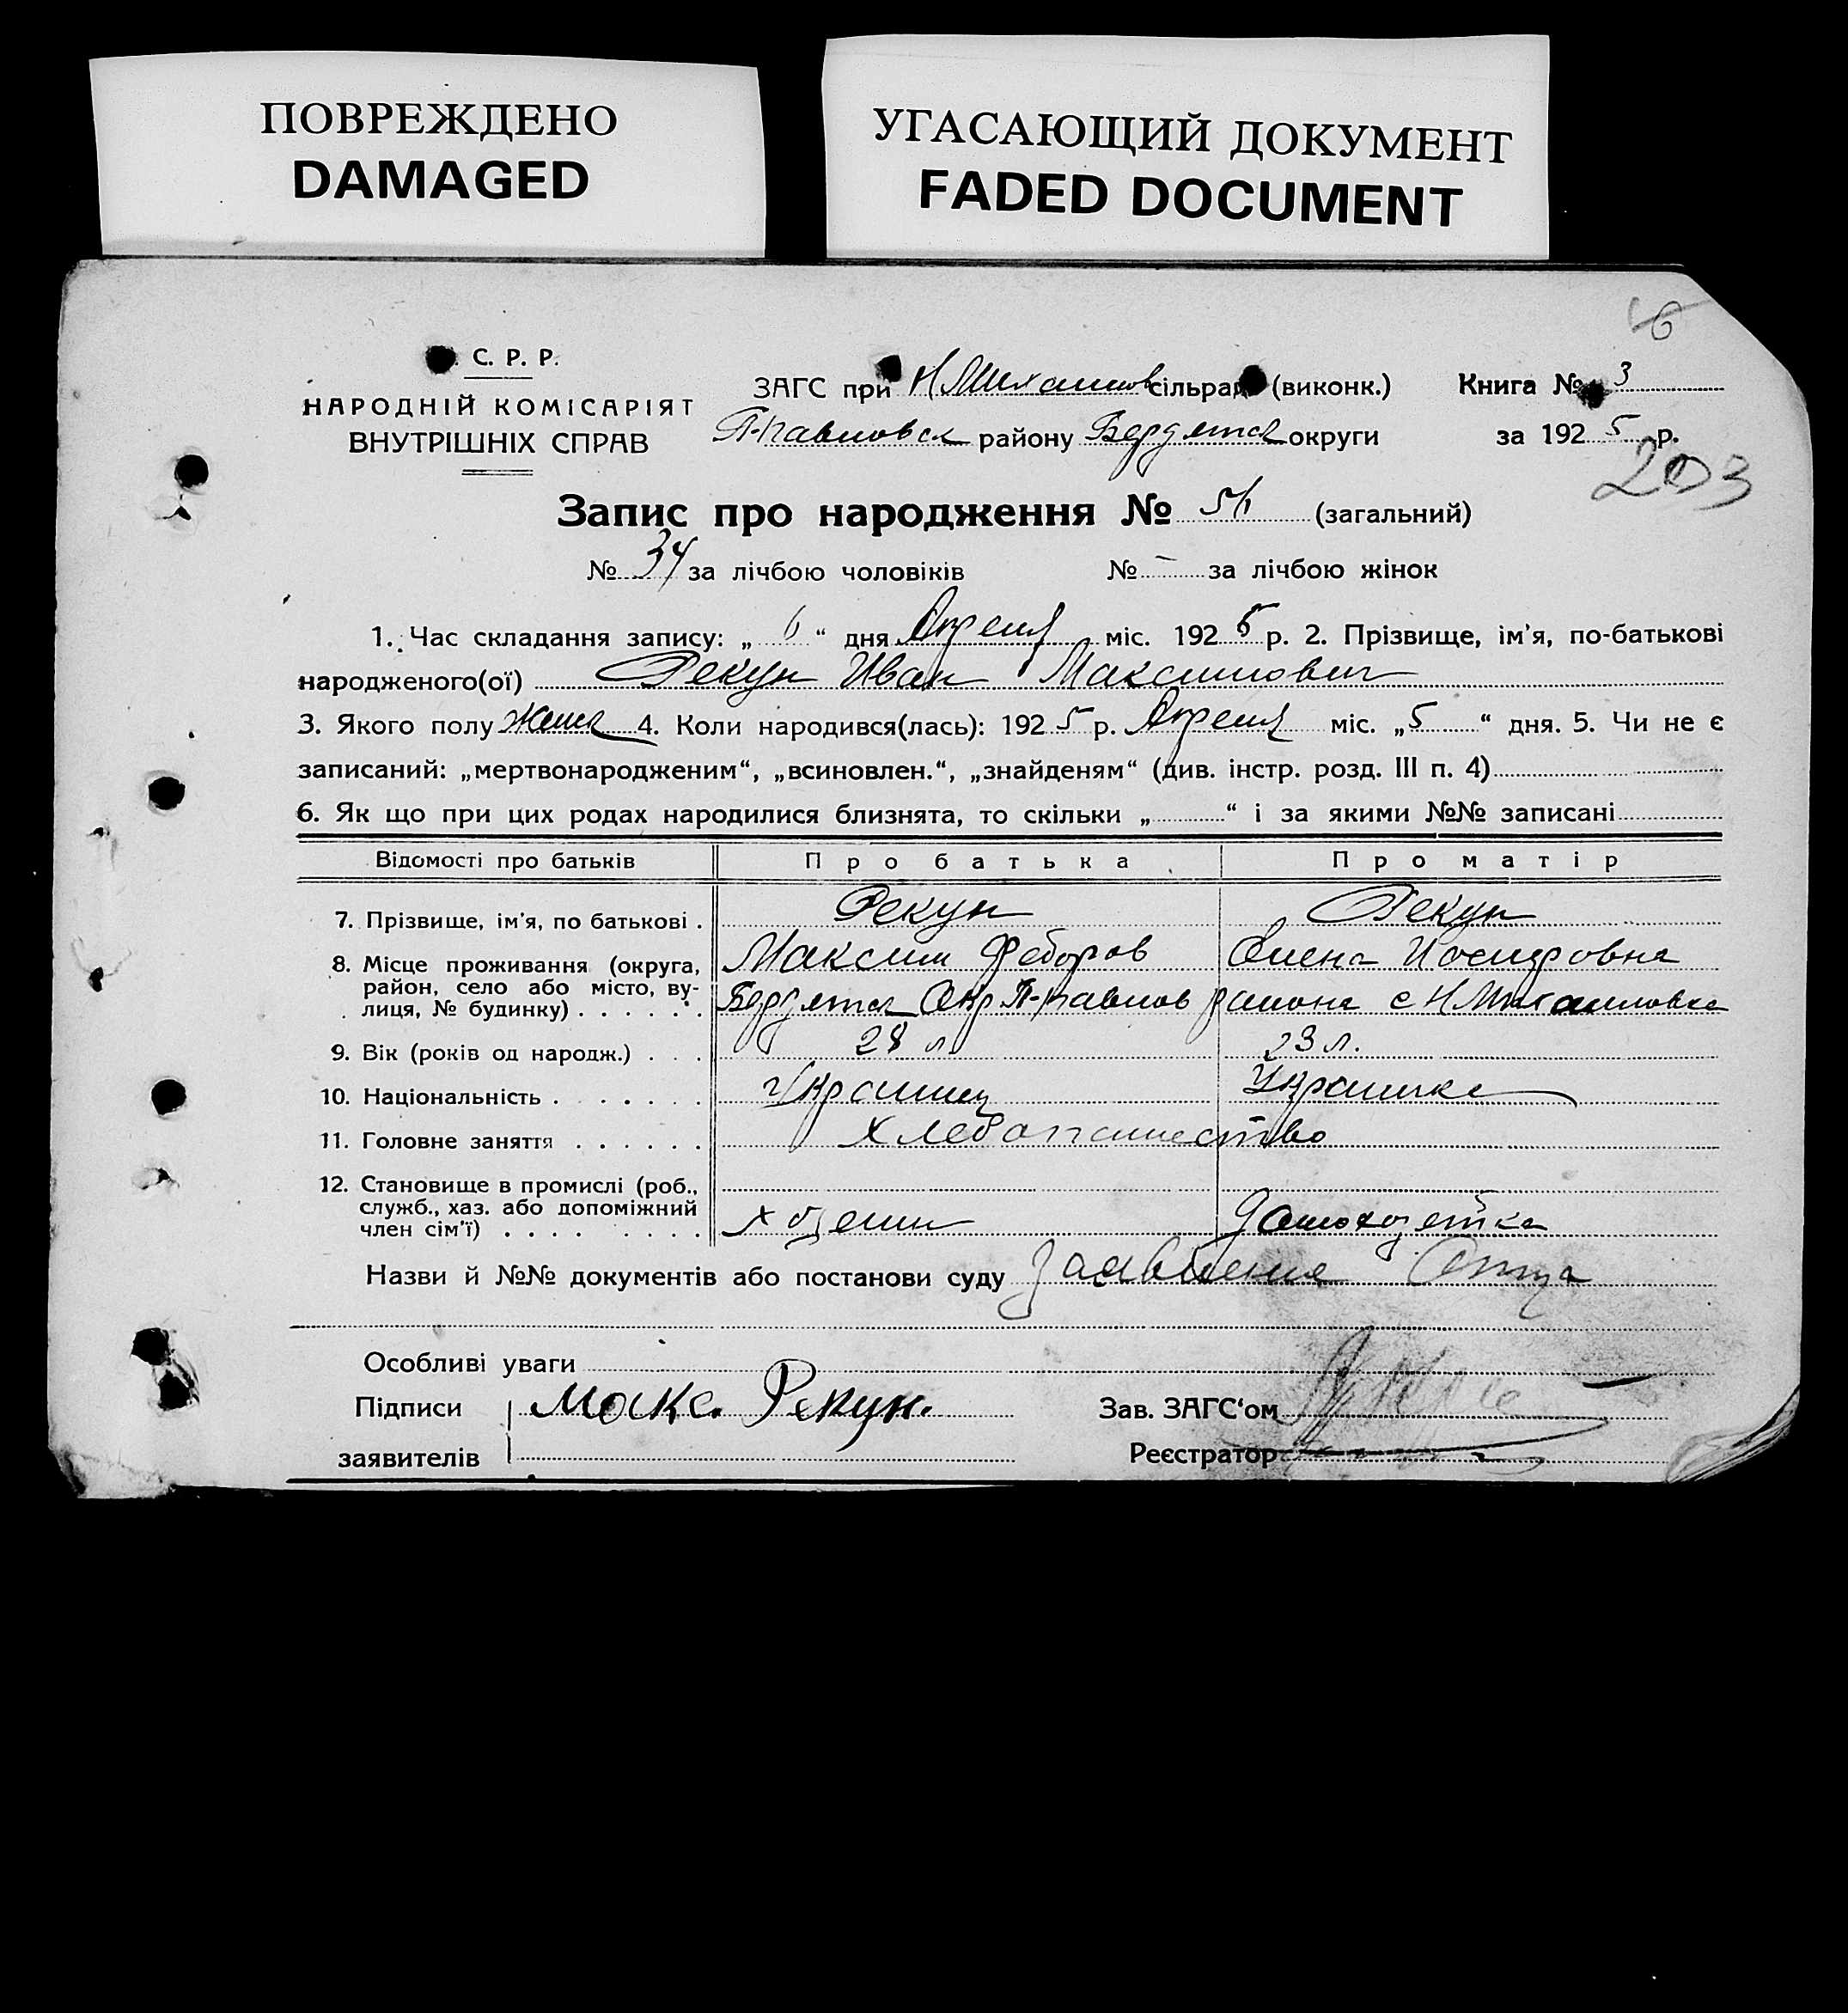 ПОВРЕЖДЕНО
DAMAGED
УГАСАЮЩИЙ ДОКУМЕНТ
FADED DOCUMENT
6
С. Р. Р.
НАРОДНІЙ КОМІСАРІЯТ
ВНУТРІШНІХ СПРАВ
ЗАГС при Н Михайлов сільрад (виконк.)
П-Павловск району Бердянск округи
Книга № 3
за 192 5 р.
203
Запис про народження № 56 (загальний)
№ 34 за лічбою чоловіків № - за лічбою жінок
1. Час складання запису: „ 6 “ дня Апреля міс. 192 5 р. 2. Прізвище, ім'я, по-батькові
народженого(ої) Рекун Иван Максимович
3. Якого полу 4. Коли народився(лась): 192 5 р. Апреля міс. „ 5 “ дня. 5. Чи не є
записаний: „мертвонародженим“, „всиновлен.“, „знайденям“ (див. інстр. розд. III п. 4)
6. Як що при цих родах народилися близнята, то скільки „ “ і за якими №№ записані
Відомості про батьків Про батька Про матір
7. Прізвище, ім'я, по батькові . Рекун Рекун
Максим Федоров Елена Иосифовна
8. Місце проживання (округа, район, село або місто, ву-
лиця, № будинку) . . . . . . Бердянск Окр П-Павлов района с Н Михайловка
9. Вік (років од народж.) . . . 28 л 23 л.
10. Національність . . . . . . . Украинец Украинка
11. Головне заняття . . . . . . Хлебопашество
12. Становище в промислі (роб.,
служб., хаз. або допоміжний
член сім'ї) . . . . . . . . хозяин домохозяйка
Назви й №№ документів або постанови суду Заявление Отца
Особливі уваги
Підписи Макс. Рекун. Зав. ЗАГС‘ом
заявителів Реєстратор